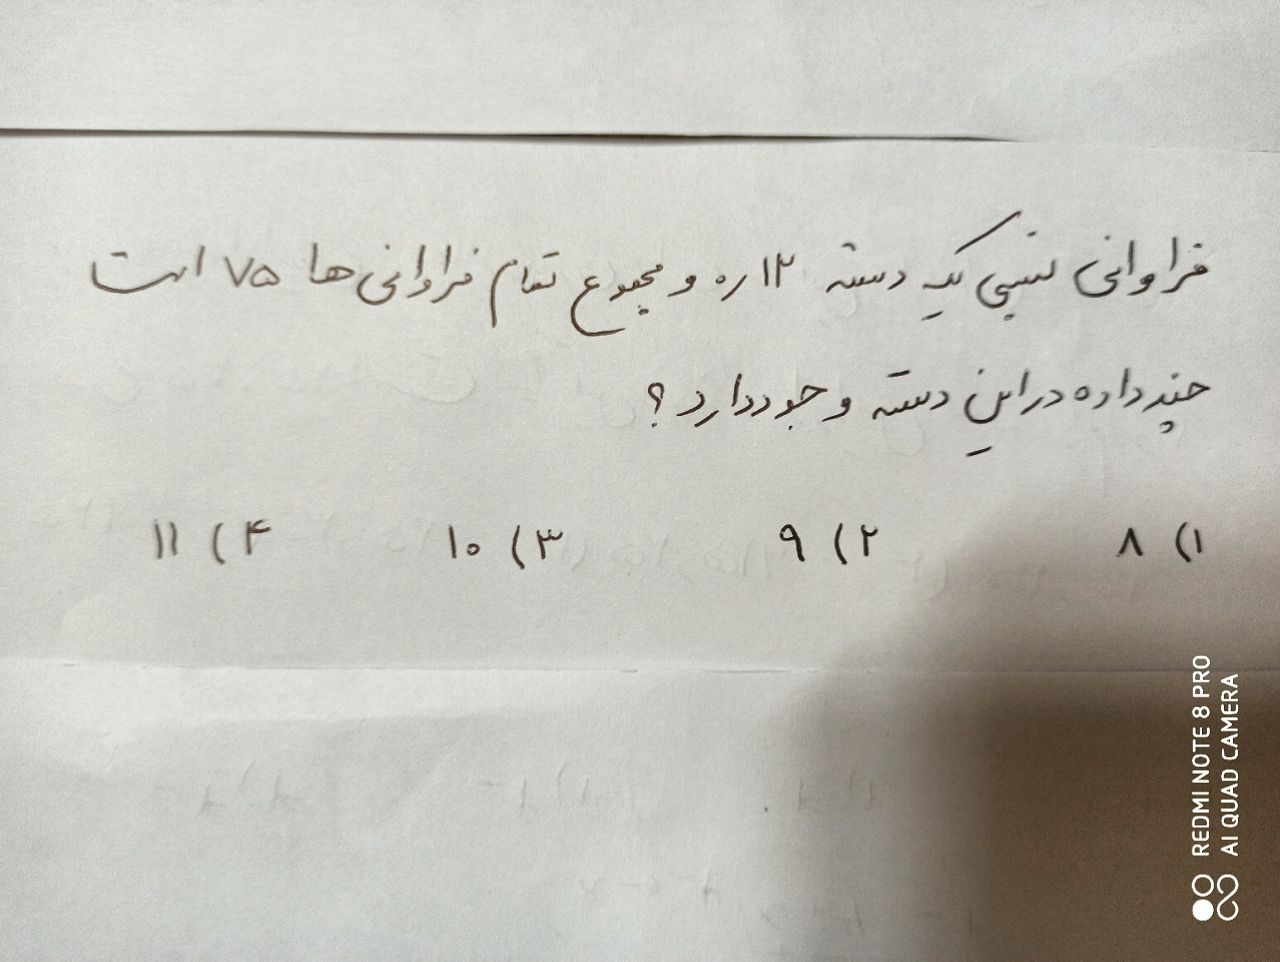 فراوانی نسبی یک دسته ۰٫۱۲ و مجموع تمام فراوانی‌ها ۷۵ است
چند داده در این دسته وجود دارد ؟
۱) ۸ ۲) ۹ ۳) ۱۰ ۴) ۱۱
REDMI NOTE 8 PRO
AI QUAD CAMERA